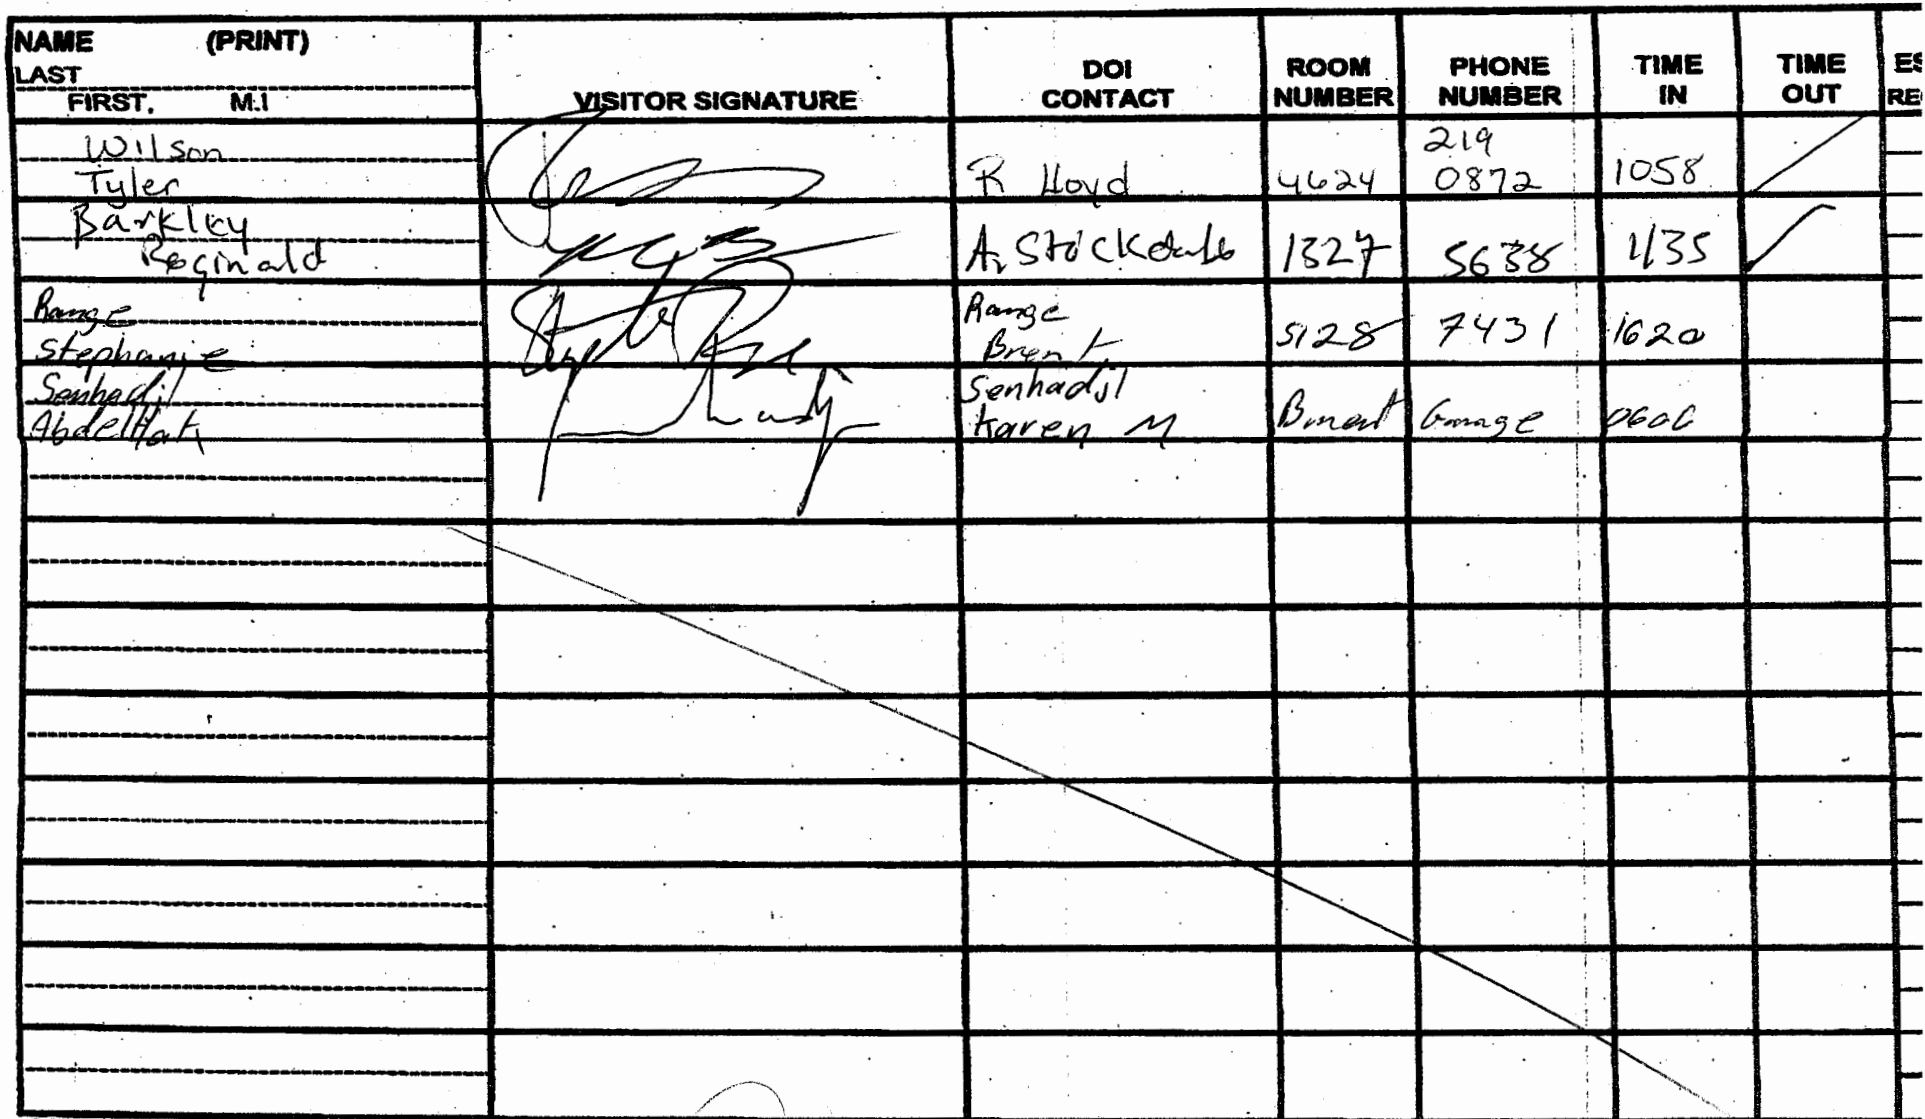 NAME (PRINT)
LAST
FIRST. M.I
VISITOR SIGNATURE
DOI
CONTACT
ROOM
NUMBER
PHONE
NUMBER
TIME
IN
TIME
OUT
ES
RE
Wilson
Tyler
R Lloyd
4624
219
0872
1058
Barkley
Reginald
A. Stockdale
1327
5638
1135
Range
Stephanie
Range
Brent
5128
7431
1620
Senhadji
AbdelHak
Senhadji
Karen M
Garage